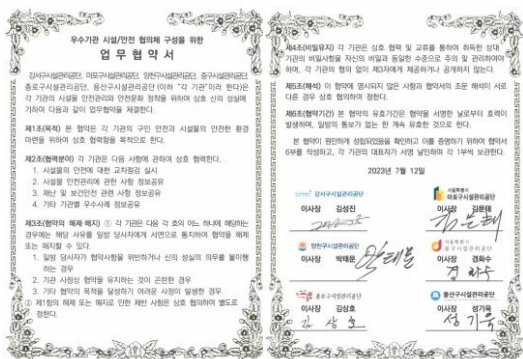 우수기관 시설/안전 협의체 구성을 위한
업 무 협 약 서
강서구시설관리공단, 마포구시설관리공단, 양천구시설관리공단, 중구시설관리공단,
종로구시설관리공단, 용산구시설관리공단 (이하 “각 기관”이라 한다)은
각 기관의 시설물 안전관리와 안전문화 정착을 위하여 상호 신의 성실에
기하여 다음과 같이 업무협약을 체결한다.
제1조(목적) 본 협약은 각 기관의 구민 안전과 시설물의 안전한 환경
마련을 위하여 상호 협력함을 목적으로 한다.
제2조(협력분야) 각 기관은 다음 사항에 관하여 상호 협력한다.
1. 시설물의 안전에 대한 교차점검 실시
2. 시설물 안전관리에 관한 사항 정보공유
3. 재난 및 보건안전 관련 사항 정보공유
4. 기타 기관별 우수사례 정보공유
제3조(협약의 해제·해지) ① 각 기관은 다음 각 호의 어느 하나에 해당하는
경우에는 해당 사유를 일방 당사자에게 서면으로 통지하여 협약을 해제
또는 해지할 수 있다.
1. 일방 당사자가 협약사항을 위반하거나 신의 성실의 의무를 불이행
하는 경우
2. 기관 사정상 협약을 유지하는 것이 곤란한 경우
3. 기타 협약의 목적을 달성하기 어려운 사정이 발생한 경우
② 제1항의 해제 또는 해지로 인한 제반 사항은 상호 협의하여 별도로
정한다.
제4조(비밀유지) 각 기관은 상호 협력 및 교류를 통하여 취득한 상대
기관의 비밀사항을 자신의 비밀과 동일한 수준으로 주의 및 관리하여야
하며, 각 기관의 협의 없이 제3자에게 제공하거나 공개하지 않는다.
제5조(해석) 이 협약에 명시되지 않은 사항과 협약서의 조문 해석이 서로
다른 경우 상호 협의하여 정한다.
제6조(협약기간) 본 협약의 유효기간은 협약을 서명한 날로부터 효력이
발생하며, 일방의 통보가 없는 한 계속 유효한 것으로 한다.
본 협약이 원만하게 성립되었음을 확인하고 이를 증명하기 위하여 협약서
6부를 작성하고, 각 기관의 대표자가 서명 날인하여 각 1부씩 보관한다.
2023년 7월 12일
강서구시설관리공단
이사장 김성진
서울특별시
마포구시설관리공단
이사장 김문태
김문태
양천구시설관리공단
이사장 박태문
박태문
서울특별시
중구시설관리공단
이사장 경화수
경화수
종로구시설관리공단
이사장 김상호
김상호
용산구시설관리공단
이사장 성기욱
성기욱